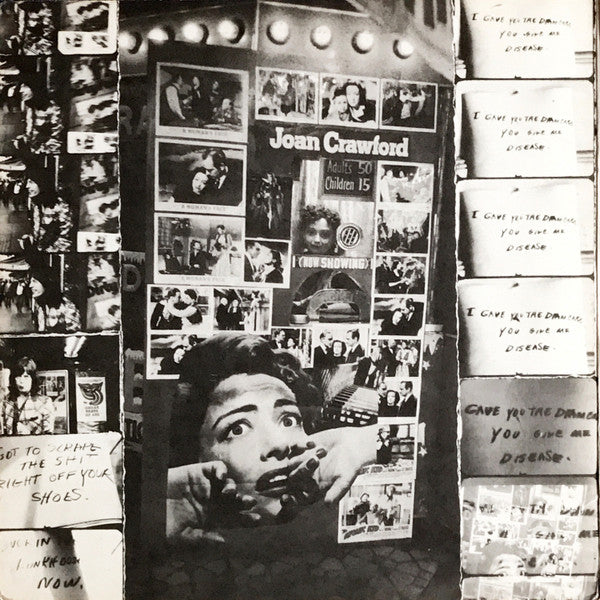 Joan Crawford
Adults 50
Children 15
(NOW SHOWING)
A WOMAN'S FACE
A WOMAN'S FACE
GOT TO SCRAPE
THE SHIT
RIGHT OFF YOUR
SHOES.
IN
NOW.
I GAVE YOU THE DIAMONDS
YOU GIVE ME
DISEASE.
I GAVE YOU THE DIAMONDS
YOU GIVE ME
DISEASE.
I GAVE YOU THE DIAMONDS
YOU GIVE ME
DISEASE.
I GAVE YOU THE DIAMONDS
YOU GIVE ME
DISEASE.
GAVE YOU THE DIAMONDS
YOU GIVE ME
DISEASE.